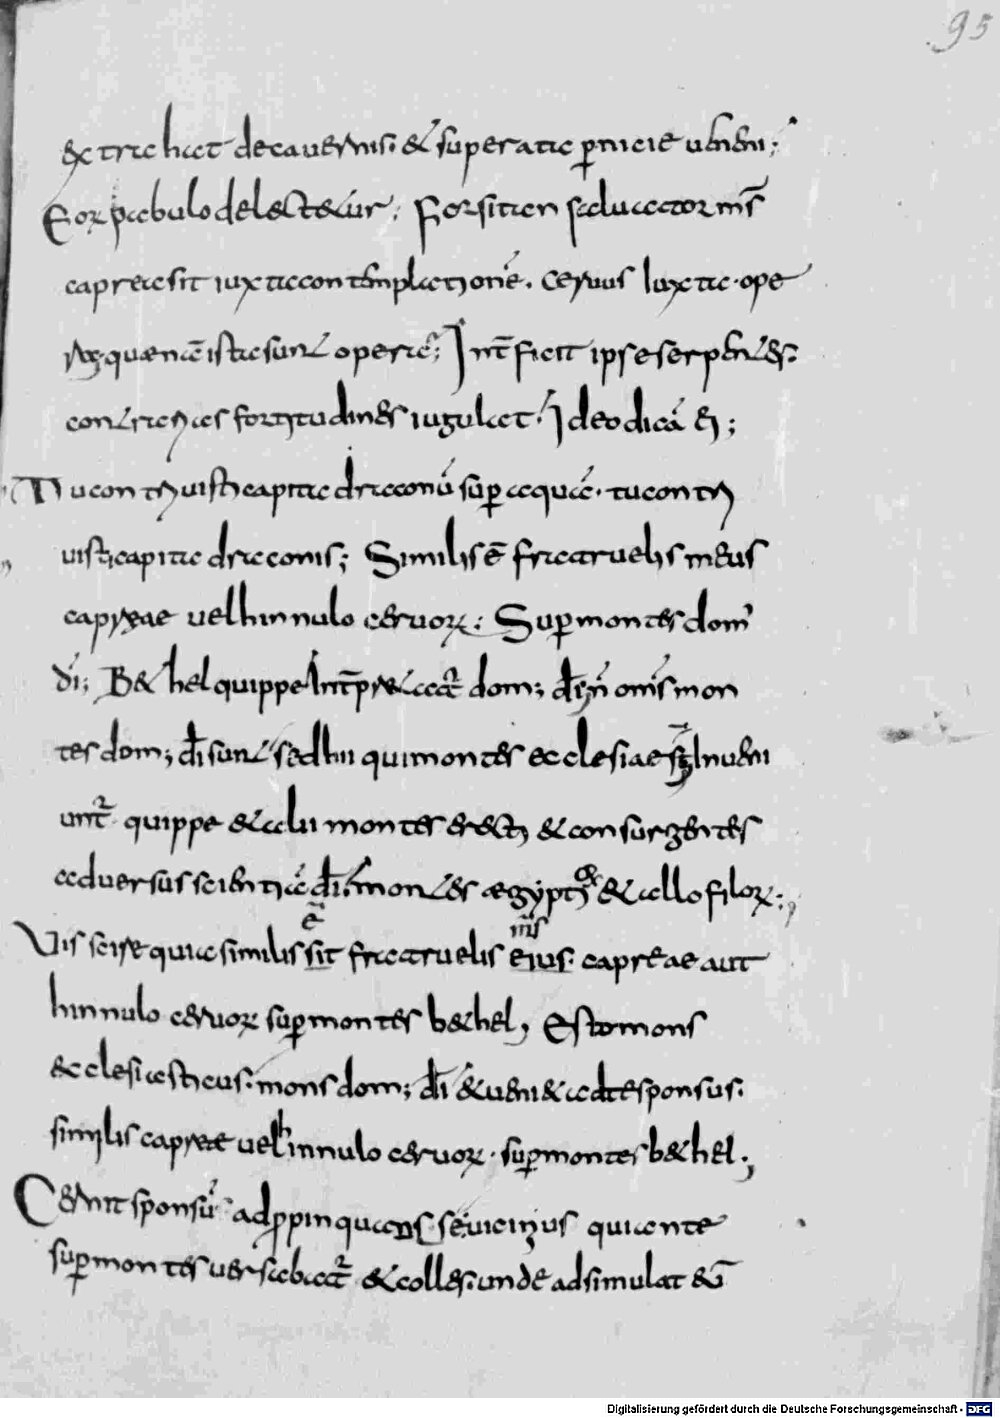 95
extrahat de cavernis. & superata pernicie veneni;
Eorum pabulo delectetur. Forsitan salvator meus
caprea sit iuxta contemplationem. cervus iuxta ope
ra. quae nam ista sunt opera; Interficit ipse serpentes.
contrarias fortitudines iugulat. Ideo dicam ei;
Tu contrivisti capita draconum super aquam. tu contri
visti capita draconis; Similis est fratruelis meus
capreae vel hinnulo cervorum; Super montes dom'
dei; Bethel quippe interpretatur dom; dei non omnes mon
tes dom; dei sunt sed hii qui montes ecclesiae sunt Inveni
untur quippe & alii montes erecti & consurgentes
adversus scientiam dei montes aegyptiorum & allofilorum;
Vis scire quia similis sit est fratruelis eius meus capreae aut
hinnulo cervorum super montes bethel, Esto mons
ecclesiasticus. mons dom; dei & veniet ad te sponsus.
similis capreae vel hinnulo cervorum. super montes bethel.
Cernit sponsum adpropinquans se vicinius qui ante
super montes versabatur & colles. unde adsimulat eum
Digitalisierung gefördert durch die Deutsche Forschungsgemeinschaft - DFG